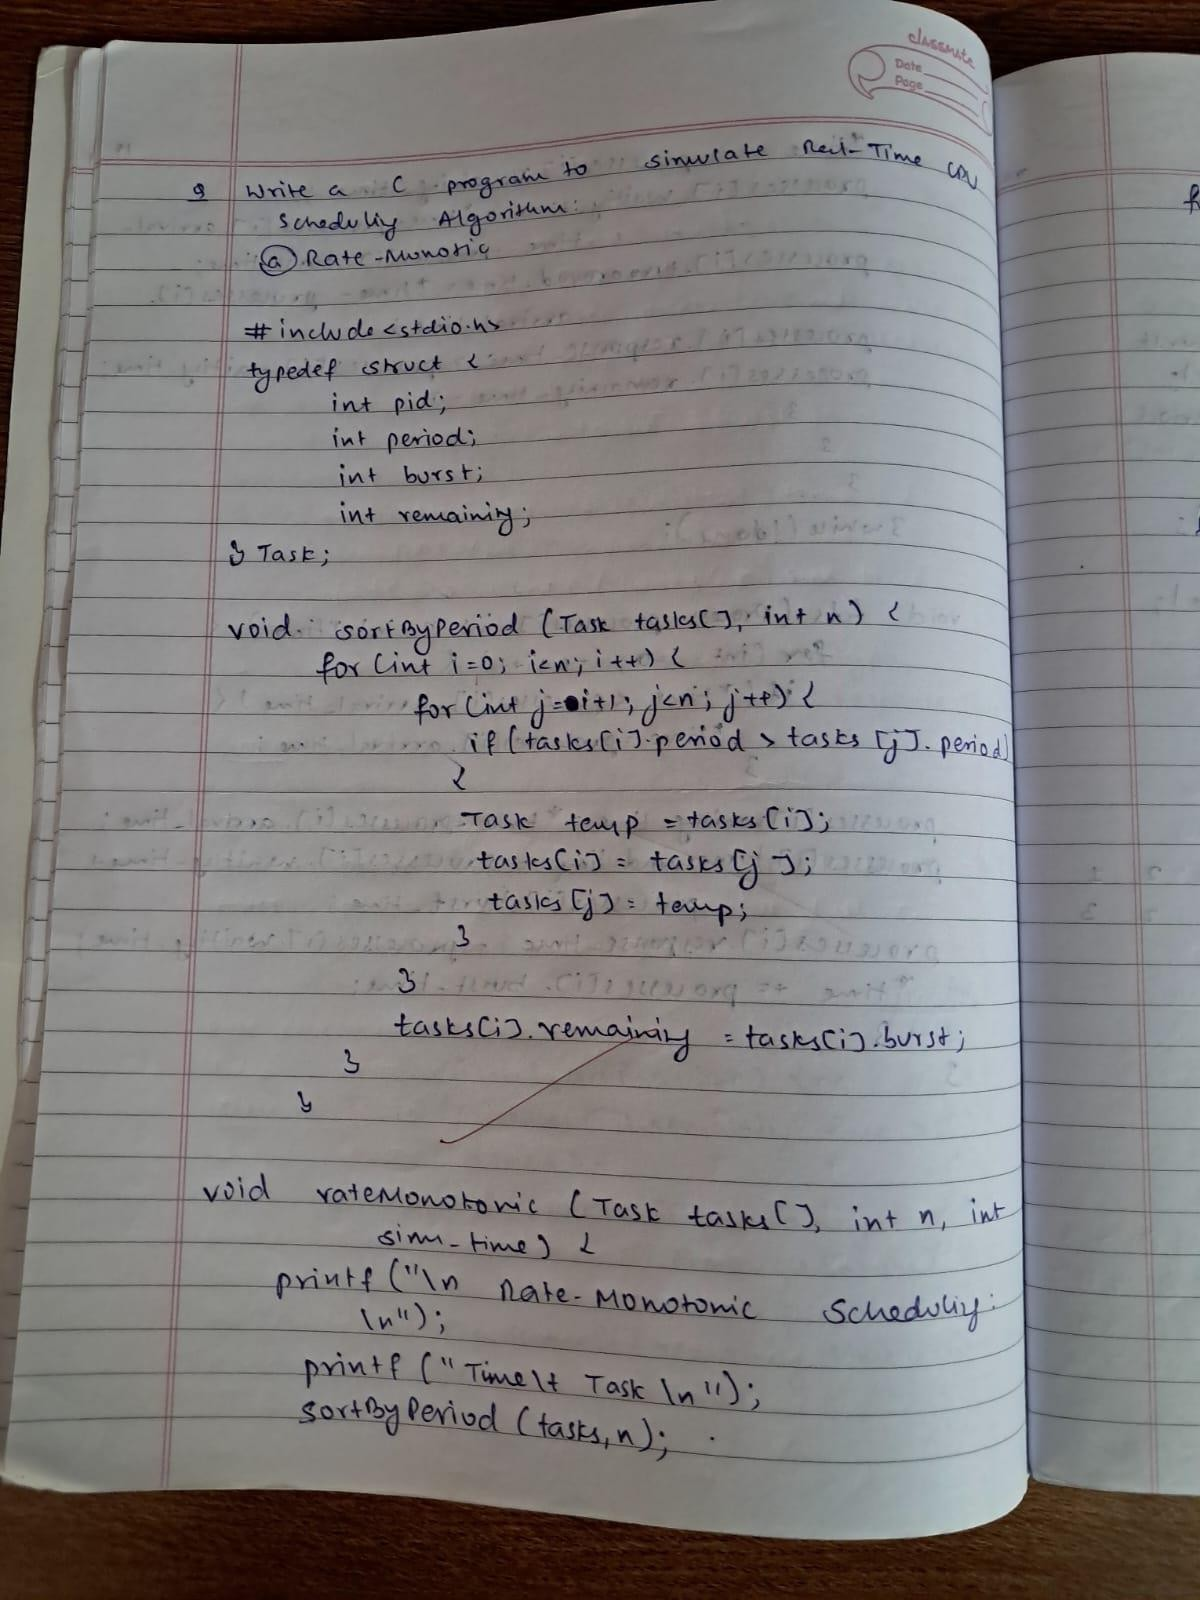 classmate
Date
Page
Q Write a C program to simulate Real-Time CPU
Scheduliy Algorithm:
(a) Rate-Monotic
#include <stdio.h>
typedef struct {
int pid;
int period;
int burst;
int remaining;
} Task;
void sortByPeriod (Task tasks[], int n) {
for (int i=0; i<n; i++) {
for (int j=i+1; j<n; j++) {
if (tasks[i].period > tasks[j].period)
{
Task temp = tasks[i];
tasks[i] = tasks[j];
tasks[j] = temp;
}
}
tasks[i].remaining = tasks[i].burst;
}
}
void rateMonotonic (Task tasks[], int n, int
sim_time) {
printf ("\n Rate-Monotonic Scheduliy:
\n");
printf ("Time\t Task \n");
sortByPeriod (tasks, n);